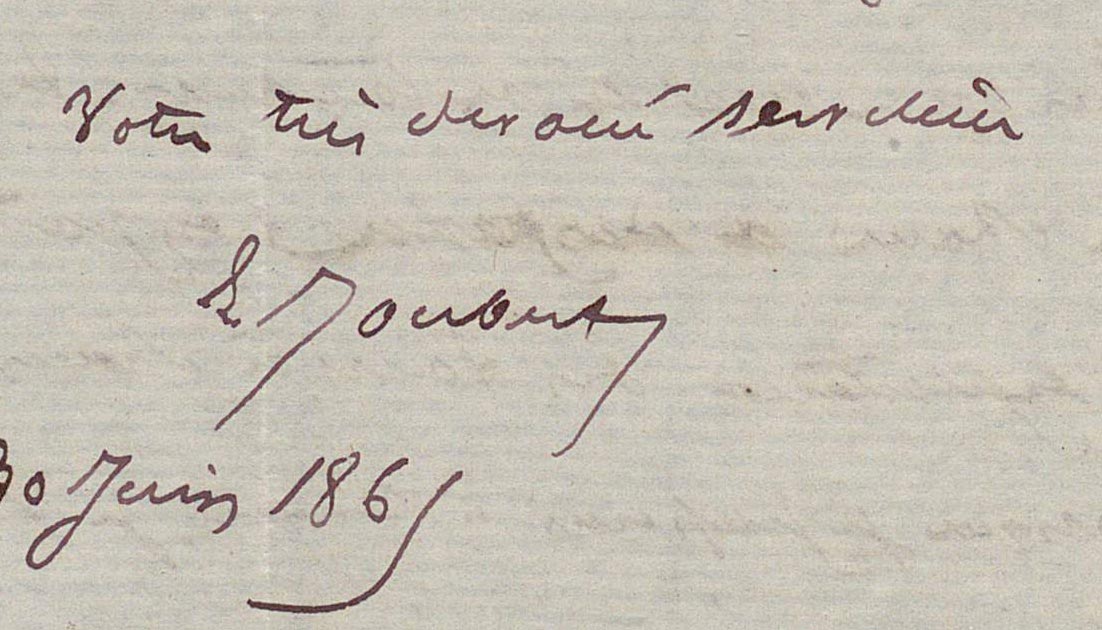 Votre très dévoué serviteur
L Joubert
30 Juin 1865